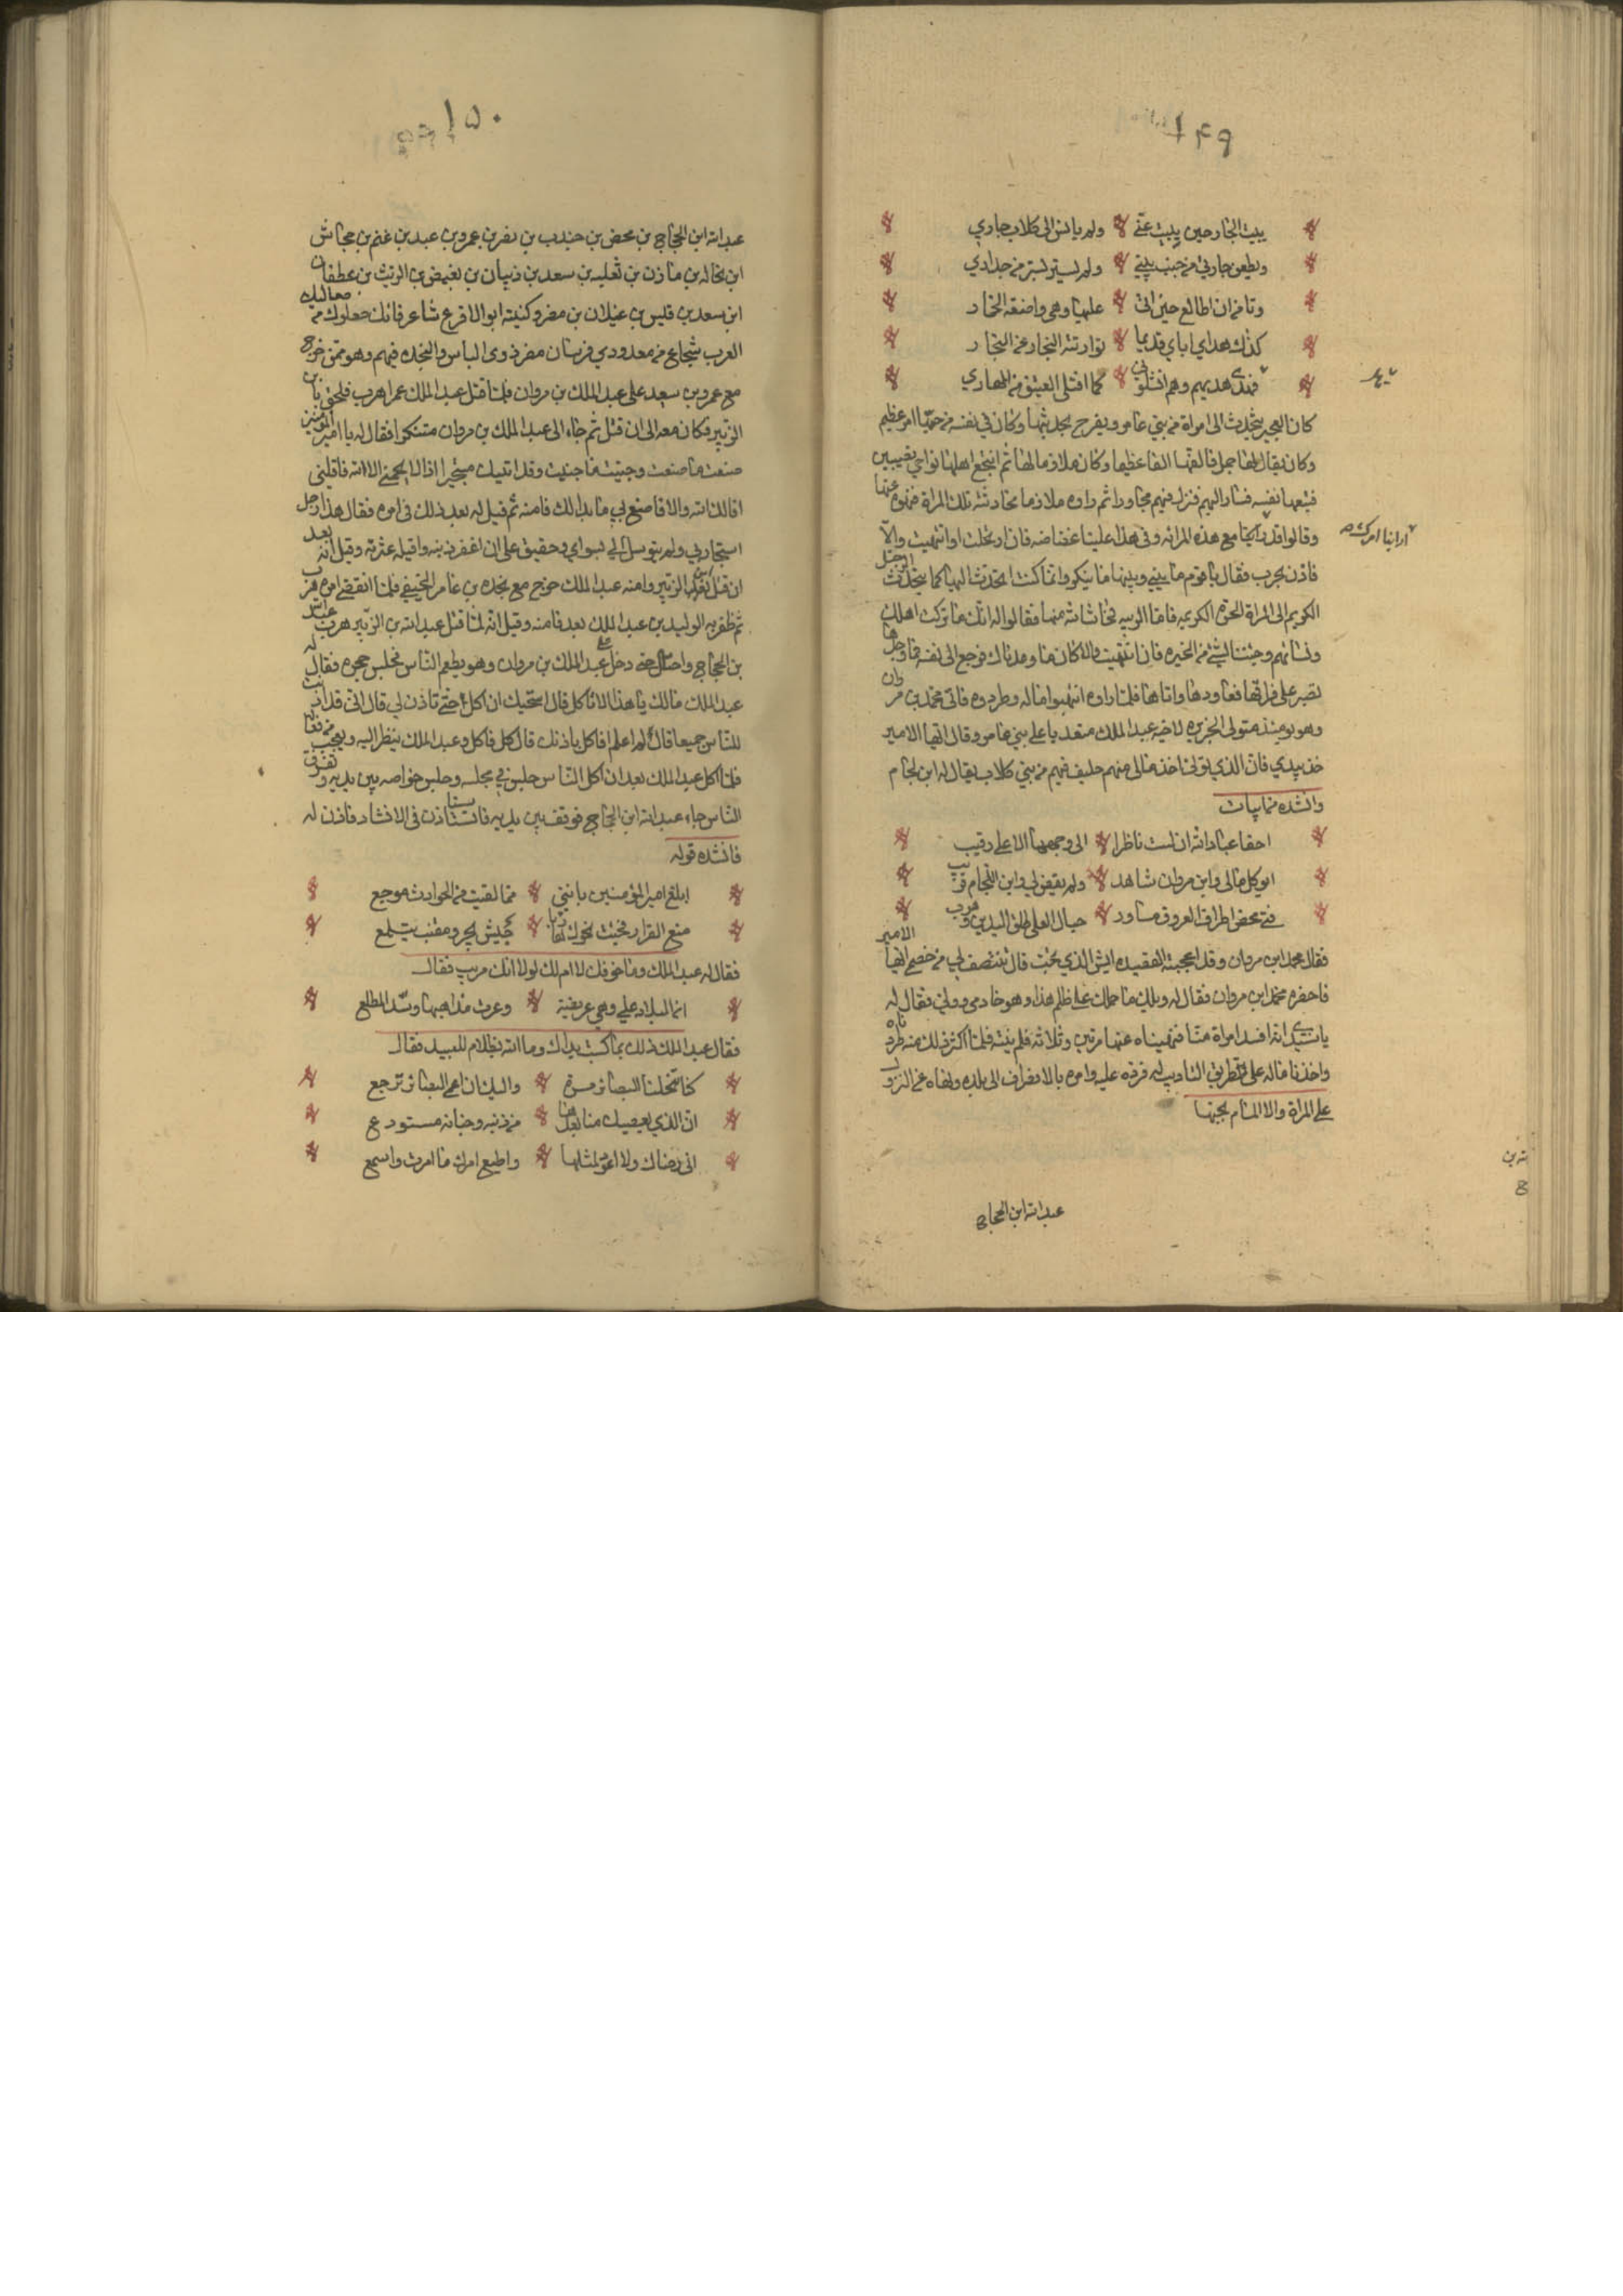 ١٤٩
يبيت الجار حين يبيت عني ولم يانس الى كلاب جاري
وتظعن جارتي من جنب بيتي ولم تستر بستر من جداري
وتامن ان اطالع حين اتي عليها وهي واضعة الخمار
كذلك هدي اباي قديما توارثه النجار عن النجار
فهديي هديهم وهم افتلوني كما افتلي العتيق من المهاري
كان العجير يتحدث الى امراة من بني عامر ويفرح بحديثها وكان في نفسه من حبها امر عظيم
وكان يقال لها جمل فالفها الفا عظيما وكان ملازما لها ثم انتجع اهلها نواحي نصيبين
فتبعها نفسه فسار اليهم فنزل فيهم مجاورا ثم راوه ملازما محادثة تلك المراة فنهوه عنها
وقالوا قد راينا مع هذه المراة وفي هذا علينا غضاضه فان ارتحلت او انتهيت والا
راينا امرك
فاذن بحرب فقال يا قوم ما بيني وبينها ما ينكر وانما كنت اتحدث اليها كما يتحدث الرجل
الكريم الى المراة الحرة الكريمه فاما الريبه فحاشا لله منها فقالوا له انك ما تركت اهلك
ونسائهم وجئت الينا من الحيره فان انتهيت والا كان منا ومنك فرجع الى نفسه فما وجدها
تصبر على فراقها فعاودها واتاها فلما راوه انتهبوا ماله وطردوه فاتى محمد بن مروان
وهو يومئذ متولى الجزيره لاخيه عبد الملك مستعديا على بني عامر وقال ايها الامير
خذ بيدي فان الذي تولى اخذ مالي منهم حليف فيهم من بني كلاب يقال له ابن لجام
وانشده ابيات
احقا عباد الله ان لست ناظرا الى وجهها الا علي رقيب
ايوكل مالي وابن مروان شاهد ولم يقض لي وابن اللجام قريب
فتى محض اطراف العروق مساور جبال العلى طلق اليدين وهوب
فقال محمد ابن مروان وقد اعجبته القصيده ايش الذي تحب قال تنتصف لي من خصمي ايها الامير
فاحضره محمد ابن مروان فقال له ويلك ما حملك على ظلم هذا وهو خادمي ووليي فقال له
يا سيدي انه افسد امراة منا فنهيناه عنها مرتين وثلاثه فلم ينته فلما اكثر ذلك منه طردناه
واخذنا ماله على طريق التاديب له فرده عليه وامره بالانصراف الى بلده ونهاه عن النزول
على المراة والالمام بحبها
عبد الله ابن الحجاج
١٥٠
عبد الله ابن الحجاج بن محصن بن جندب بن نصر بن عمرو بن عبد بن غنم بن جحاش
ابن بجاله بن مازن بن ثعلبه بن سعد بن ذبيان بن بغيض بن الريث بن غطفان
ابن سعد بن قليس بن عيلان بن مضر وكنيته ابو الاقرع شاعر فاتك صعلوك من صعاليك
العرب شجاع من معدودي فرسان مضر ذوى الباس والنجده فيهم وهو ممن خرج
مع عمرو بن سعيد على عبد الملك بن مروان فلما قتل عبد الملك عمرا هرب فلحق بابن
الزبير فكان معه الى ان قتل ثم جاء الى عبد الملك بن مروان متنكرا فقال له يا امير المؤمنين
صنعت ما صنعت وجنيت ما جنيت وقد اتيتك مستجيرا اذا لا يحميني الا الله فاقلني
اقالك الله والا فاصنع بي ما بدا لك فامنه ثم قيل له بعد ذلك في امره فقال هذا رجل
استجار بي ولم يتوسل الي بسواي وحقيق علي ان اغفر ذنبه واقيله عثرته وقيل انه بعد
ان قتل ابن الزبير وامنه عبد الملك خرج مع نجده بن عامر الحنيفي فلما انقضى امره هرب
ثم ظفر به الوليد بن عبد الملك بعد فامنه وقيل انه لما قتل عبد الله بن الزبير هرب عبد الله
بن الحجاج واحتال حتى دخل على عبد الملك بن مروان وهو يطعم الناس فجلس حجره فقال له
عبد الملك مالك يا هذا لا تاكل قال استحيك ان اكل حتى تاذن لي قال اني قد اذنت
للناس جميعا قال لم اعلم افاكل باذنك قال كل فاكل وعبد الملك ينظر اليه ويعجب من فعاله
فلما اكل عبد الملك بعد ان اكل الناس جلس في مجلسه وجلس خواصه بين يديه وتفرق
الناس جاء عبد الله ابن الحجاج فوقف بين يديه فاستاذن في الانشاد فاذن له
فانشده قوله
ابلغ امير المؤمنين بانني مما لقيت من الحوادث موجع
منع القرار فجئت نحوك هاربا جيش يجر ومقنب يتلمع
فقال له عبد الملك وما خوفك لا ام لك لولا انك مريب فقال
ان البلاد علي وهي عريضة وعرت مذاهبها وسد المطلع
فقال عبد الملك ذلك بما كسبت يداك وما الله بظلام للعبيد فقال
كنا تنحلنا البصائر مرة واليك ان عمي البصائر ترجع
ان الذي يعصيك منا بعدها من ذنبه وجنانه مستودع
اتي رضاك ولا اعود لمثلها واطيع امرك ما امرت واسمع